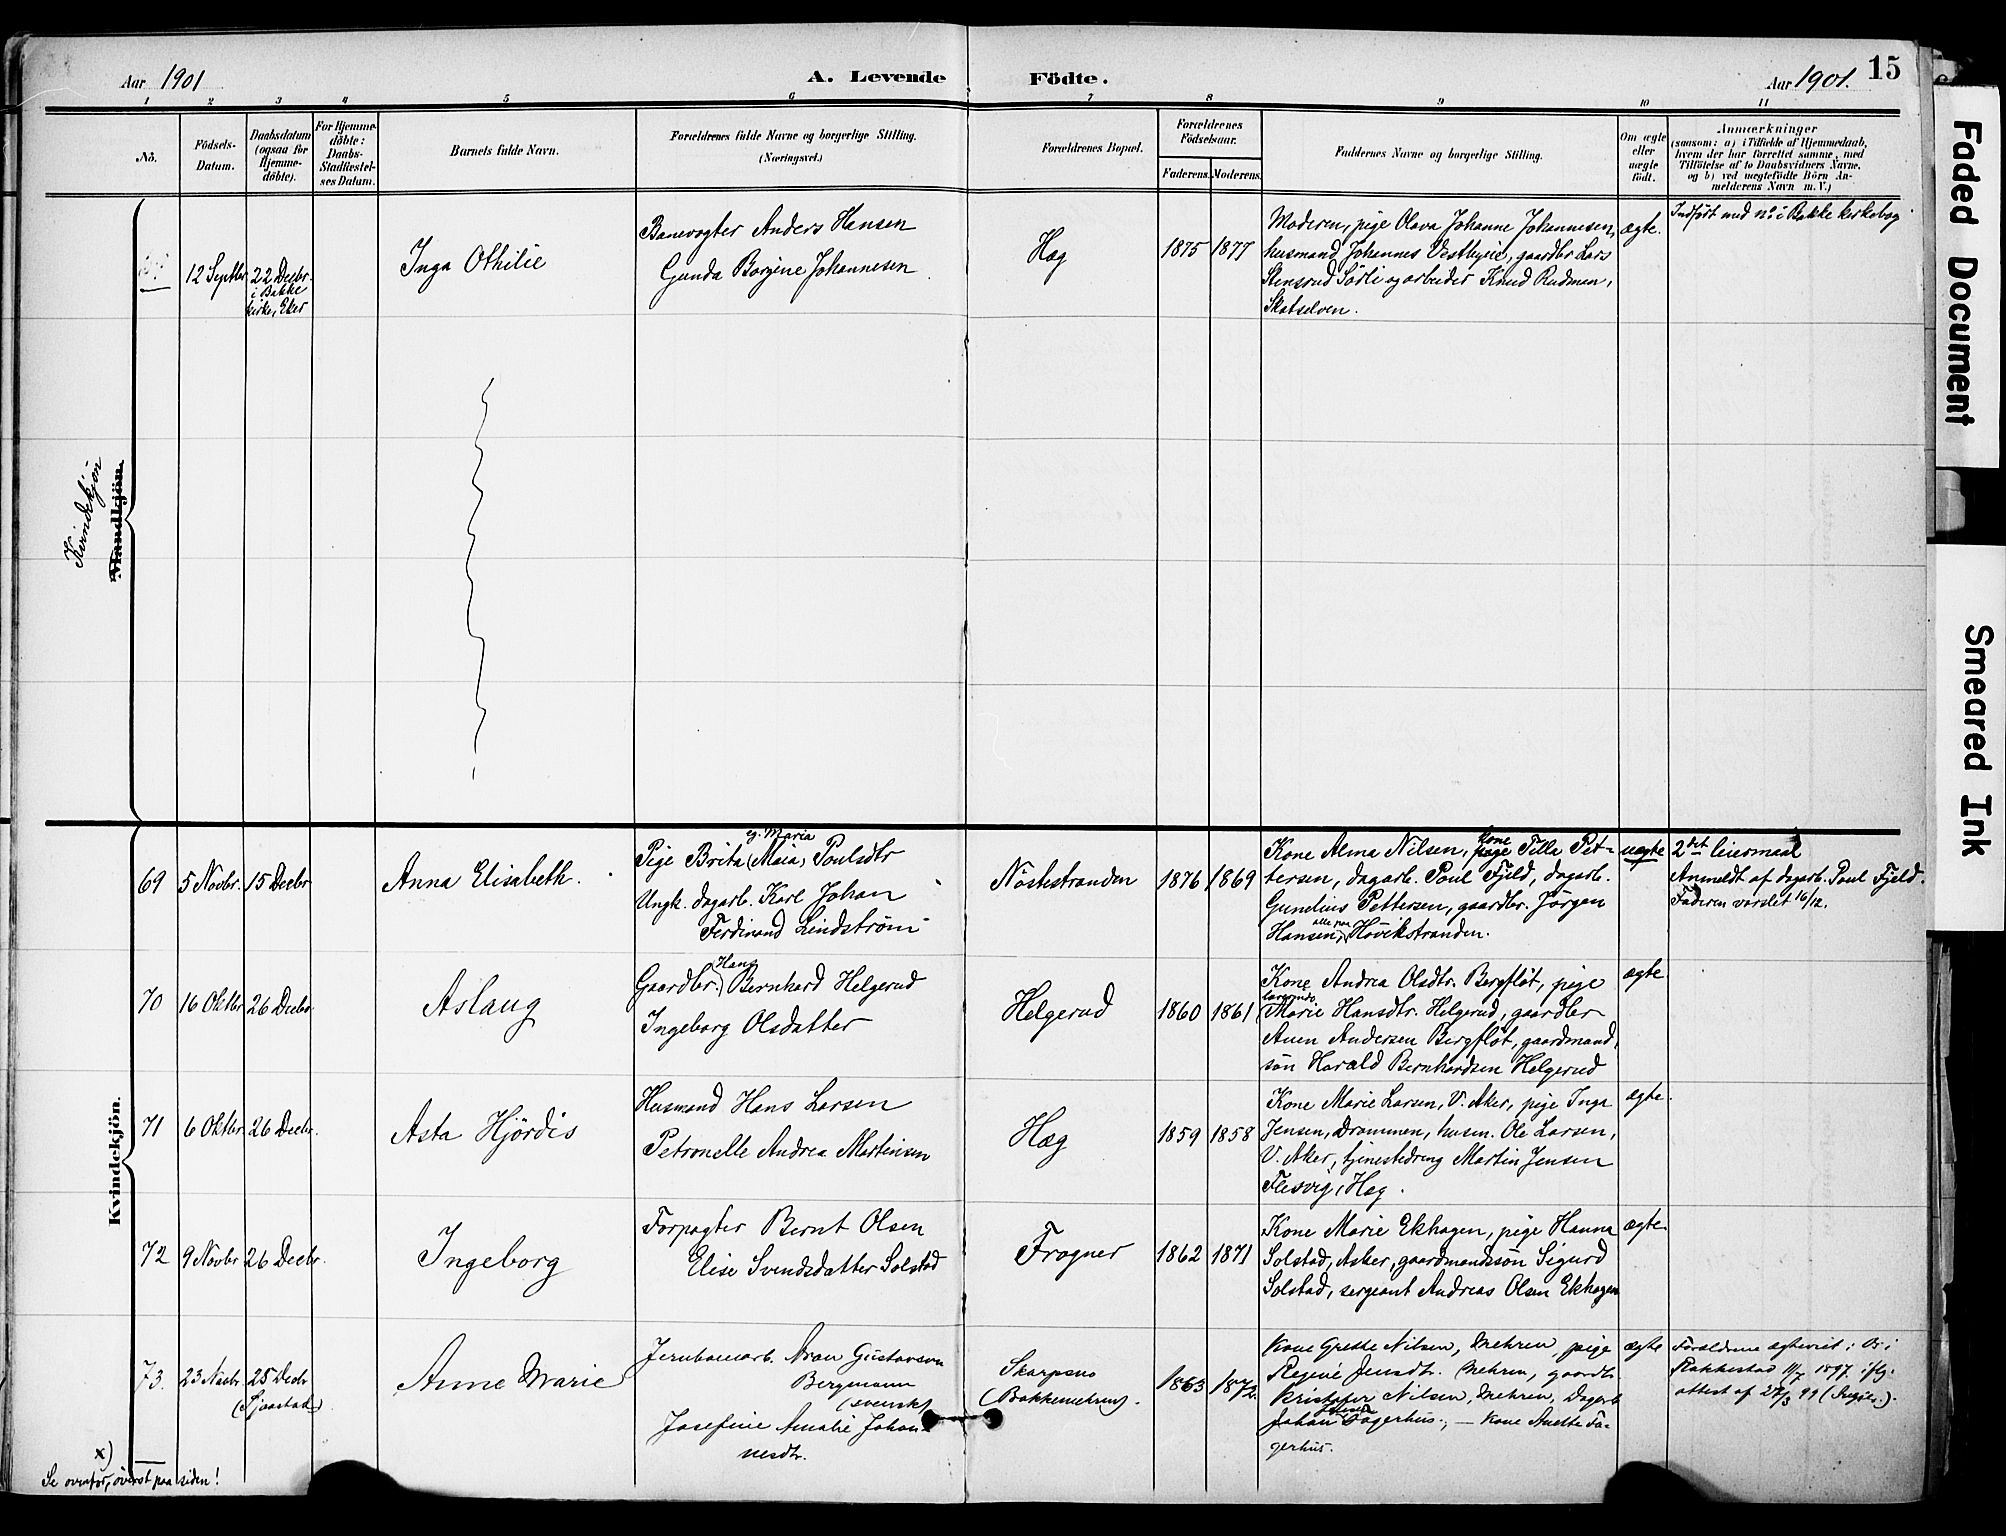 Aar 1901
A. Levende Födte.
Aar 1901.
15
1 2 3 4 5 6 7 8 9 10 11
No.
Födsels-
Datum.
Daabsdatum
(ogsaa for
Hjemme-
döbte).
For Hjemme-
döbte:
Daabs-
Stadfæstel-
ses Datum.
Barnets fulde Navn.
Forældrenes fulde Navne og borgerlige Stilling.
(Næringsvei.)
Forældrenes Bopæl.
Forældrenes
Födselsaar.
Faderens. Moderens.
Faddernes Navne og borgerlige Stilling.
Om ægte
eller
uægte
födt.
Anmærkninger
(saasom: a) i Tilfælde af Hjemmedaab,
hvem der har forrettet samme, med
Tilföielse af to Daabsvidners Navne.
og b) ved uægtefödte Börn An-
melderens Navn m. V.)
Kvindekjön
Mandkjön.
12 Septbr
22 Decbr.
i Bakke
kirke, Eker
Inga Othilie
Banevogter Anders Hansen
Gunda Borgine Johannesen
Hæg
1875
1877
Moderen, pige Olava Johanne Johannesen,
husmand Johannes Vestbyeie, gaardbr Lars
Stensrud Sörli og arbeider Knud Rudman,
Skotselven.
ægte.
Indfört med no i Bakke kirkebog
Kvindekjön.
69
5 Novbr.
15 Decbr
Anna Elisabeth.
eg. Maria
Pige Brita (Maia) Poulsdtr
Ungk. dagarb. Karl Johan
Ferdinand Lindström
Nöstestranden
1876
1869
Kone Alma Nilsen, kone pige Tilla Pet-
tersen, dagarb. Poul Fjeld, dagarb.
Gundius Pettersen, gaardbr. Jörgen
Hansen, alle paa Hövikstranden.
uægte
2det leiermaal
Anmeldt af dagarb. Poul Fjeld.
Faderen varslet 16/12.
70
16 Oktbr
26 Decbr.
Aslaug
Gaardbr. Hans Bernhard Helgerud
Ingeborg Olsdatter
Helgerud
1860
1861
Kone Andrea Olsdtr. Bergflöt, pige
Marie Hansdtr. Helgerud, gaardbr
Auen Andersen Bergflöt, gaardmand,
sön Harald Bernhardsen Helgerud
ægte.
71
6 Oktbr
26 Decbr.
Asta Hjördis
Husmand Hans Larsen
Petronelle Andrea Martinsen
Hæg
1859
1858
Kone Marie Larsen, V. Aker, pige Inga
Jensen, Drammen, husm. Ole Larsen,
V. Aker, tjenestedreng Martin Jensen
Flesvig, Hæg.
ægte.
72
9 Novbr
26 Decbr.
Ingeborg
Forpagter Bernt Olsen
Elise Svendsdatter Solstad
Frogner
1862
1871
Kone Marie Ekhagen, pige Hanna
Solstad, Asker, gaardmandssön Sigurd
Solstad, sergeant Andreas Olsen Ekhagen
ægte.
73.
23 Novbr.
25 Decbr
(Sjaastad)
Anne Marie
Jernbanearb. Aron Gustavsen
Bergmann
(svensk)
Josefine Amalie Johan-
nesdtr.
Skarpsno
(Bakkemehren).
1863
1872.
Kone Grethe Nilsen, Mehren, pige
Regine Jensdtr. Mehren, gaardbr.
Kristofer Nilsen, Mehren, Dagarb
Johan Fagerhus., — Kone Anette Fa-
gerhus.
ægte
Forældrene ægteviet i
Rakkestad 11/7 1897 ifg.
attest af 27/3 99
x)
Se ovenfor, överst paa siden!
Faded Document
Smeared Ink